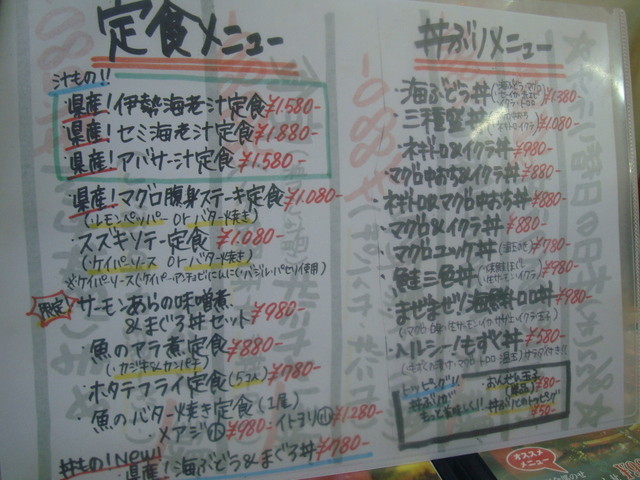 定食メニュー
汁もの!!
県産!伊勢海老汁定食¥1.580-
県産!セミ海老汁定食¥1.880-
県産!アバサー汁定食¥1.580-
・県産!マグロ腹身ステーキ定食¥1.080-
(・レモンペッパー orバター焼き)
・スズキソテー定食 ¥1.080-
(・ケイパーソース orバター焼き)
※ケイパーソース(ケイパー・アンチョビ・にんにく・バジル・パセリ使用)
限定 サーモンあらの味噌煮
&まぐろ丼セット ¥980-
・魚のアラ煮定食 ¥880-
(・カジキ&カンパチ)
・ホタテフライ定食(5コ入)¥780-
・魚のバター焼き定食(1尾)
・メアジ小¥980- ・イトヨリ小¥1.280-
丼もの!New!
県産!海ぶどう&まぐろ丼¥780-
丼ぶりメニュー
・海ぶどう丼 ¥1.380-
・三種盛丼 ¥1.080-
・ネギトロ&イクラ丼 ¥980-
・マグロ中おち&イクラ丼 ¥880-
・ネギトロ&マグロ中おち丼 ¥880-
・マグロ&イクラ丼 ¥880-
・マグロユッケ丼(温玉のせ)¥780-
・鮭三色丼 ¥780-
・まぜまぜ!海鮮トロロ丼¥980-
・ヘルシー!もずく丼 ¥580-
トッピング!!
丼ぶりが
もっと美味しく!!
おんせん玉子
(単品)¥80-
丼ぶりにのトッピング
¥50-
オススメ
メニュー